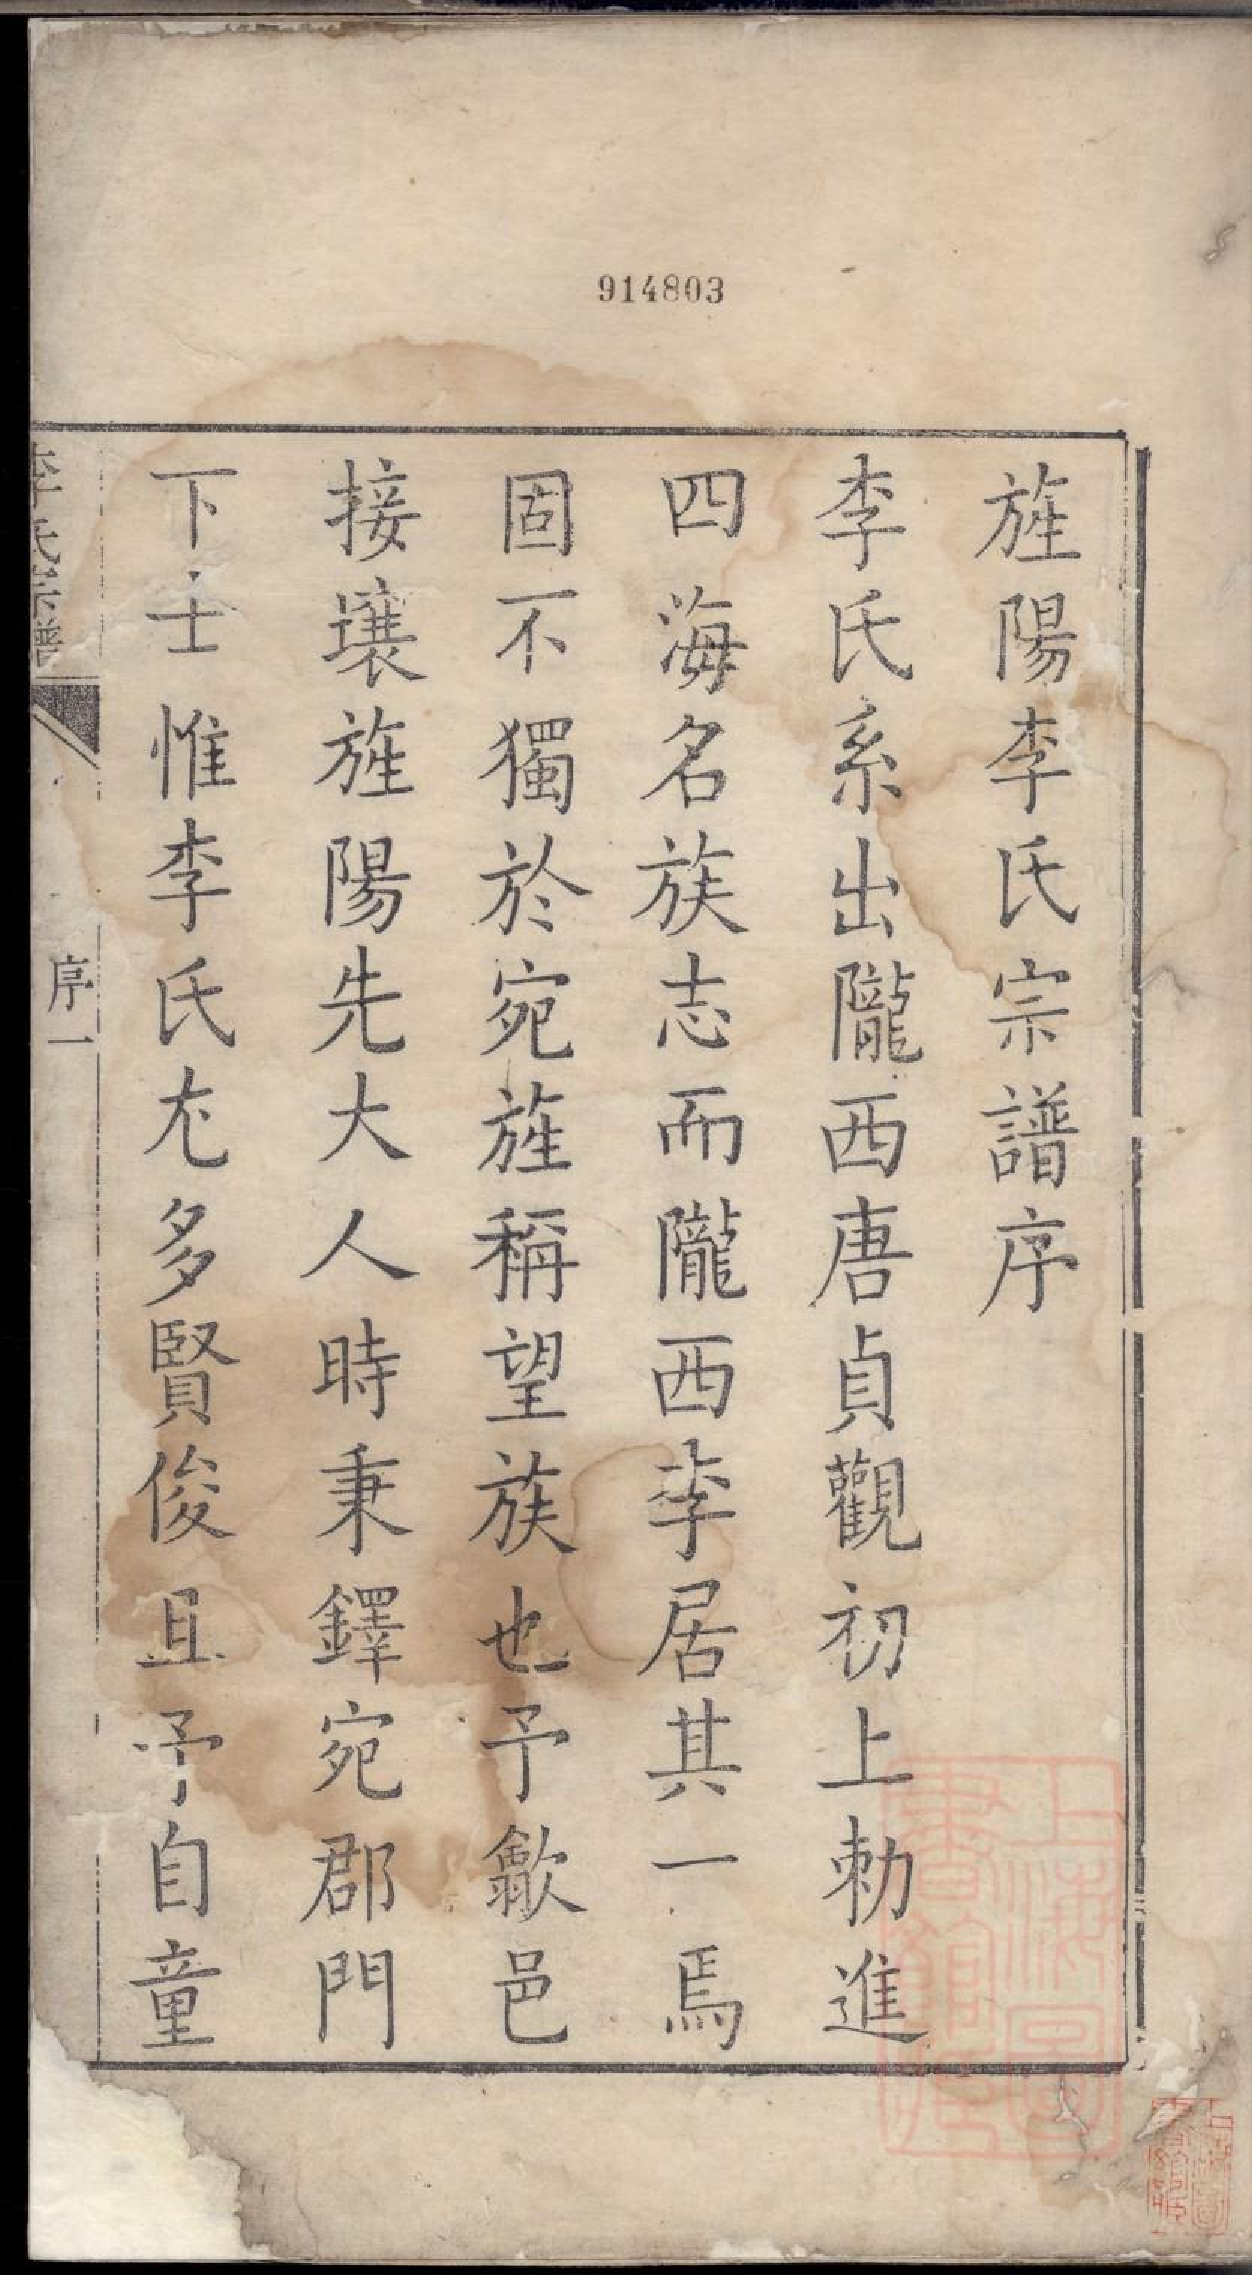 914803
旌陽李氏宗譜序
李氏系出隴西唐貞觀初上勅進
四海名族志而隴西李居其一焉
固不獨於宛旌稱望族也予歙邑
接壤旌陽先大人時秉鐸宛郡門
下士惟李氏尤多賢俊且予自童
李氏宗譜
序一
上海圖書館藏
上海圖書館藏